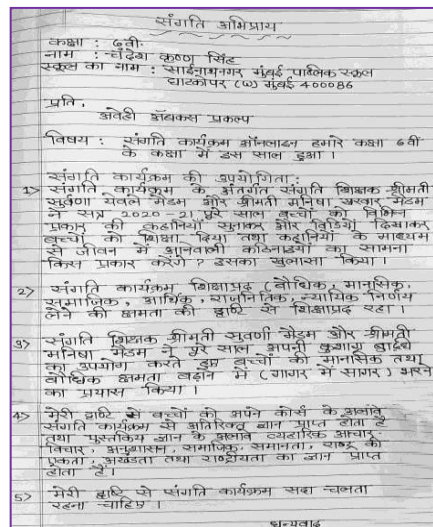 संगति अभिप्राय
कक्षा : ६वी.
नाम : चंद्रेश कृष्ण सिंह
स्कूल का नाम : साईनाथनगर मुंबई पब्लिक स्कूल
घाटकोपर (W) मुंबई 400086
प्रति,
अवेही अ‍ॅबकस प्रकल्प
विषय : संगति कार्यक्रम ऑनलाइन हमारे कक्षा ६वीं
के कक्षा में इस साल हुआ ।
संगति कार्यक्रम की उपयोगिता :
1> संगति कार्यक्रम के अंतर्गत संगति शिक्षक श्रीमती
सुवर्णा येवले मैडम और श्रीमती मनिषा मैडम
ने सत्र 2020-21 पूरे साल बच्चों को विभिन्न
प्रकार की कहानियाँ सुनाकर और विडियो दिखाकर
बच्चों को शिक्षा दिया तथा कहानियों के माध्यम
से जीवन में आनेवाली कठिनाइयों का सामना
किस प्रकार करेंगे ? उसका खुलासा किया ।
2> संगति कार्यक्रम शिक्षाप्रद (बौधिक, मानसिक,
समाजिक, आर्थिक, राजनितिक, न्यायिक निर्णय
लेने की क्षमता की दृष्टि से शिक्षाप्रद रहा ।
3> संगति शिक्षक श्रीमती सुवर्णा मैडम और श्रीमती
मनिषा मैडम ने पूरे साल अपनी कुशाग्र बुद्धि
का उपयोग करते हुए बच्चों की मानसिक तथा
बौधिक क्षमता बढ़ाने में (गागर में सागर) भरने
का प्रयास किया ।
4> मेरी दृष्टि से बच्चों को अपने कोर्स के अलावे
संगति कार्यक्रम से अतिरिक्त ज्ञान प्राप्त होता है
तथा पुस्तकिय ज्ञान के अलावे व्यहारिक आचार
विचार, अनुशासन, समाजिक, समानता, राष्ट्र की
एकता, अखंडता तथा राष्ट्रीयता का ज्ञान प्राप्त
होता है।
5> मेरी दृष्टि से संगति कार्यक्रम सदा चलता
रहना चाहिए ।
धन्यवाद